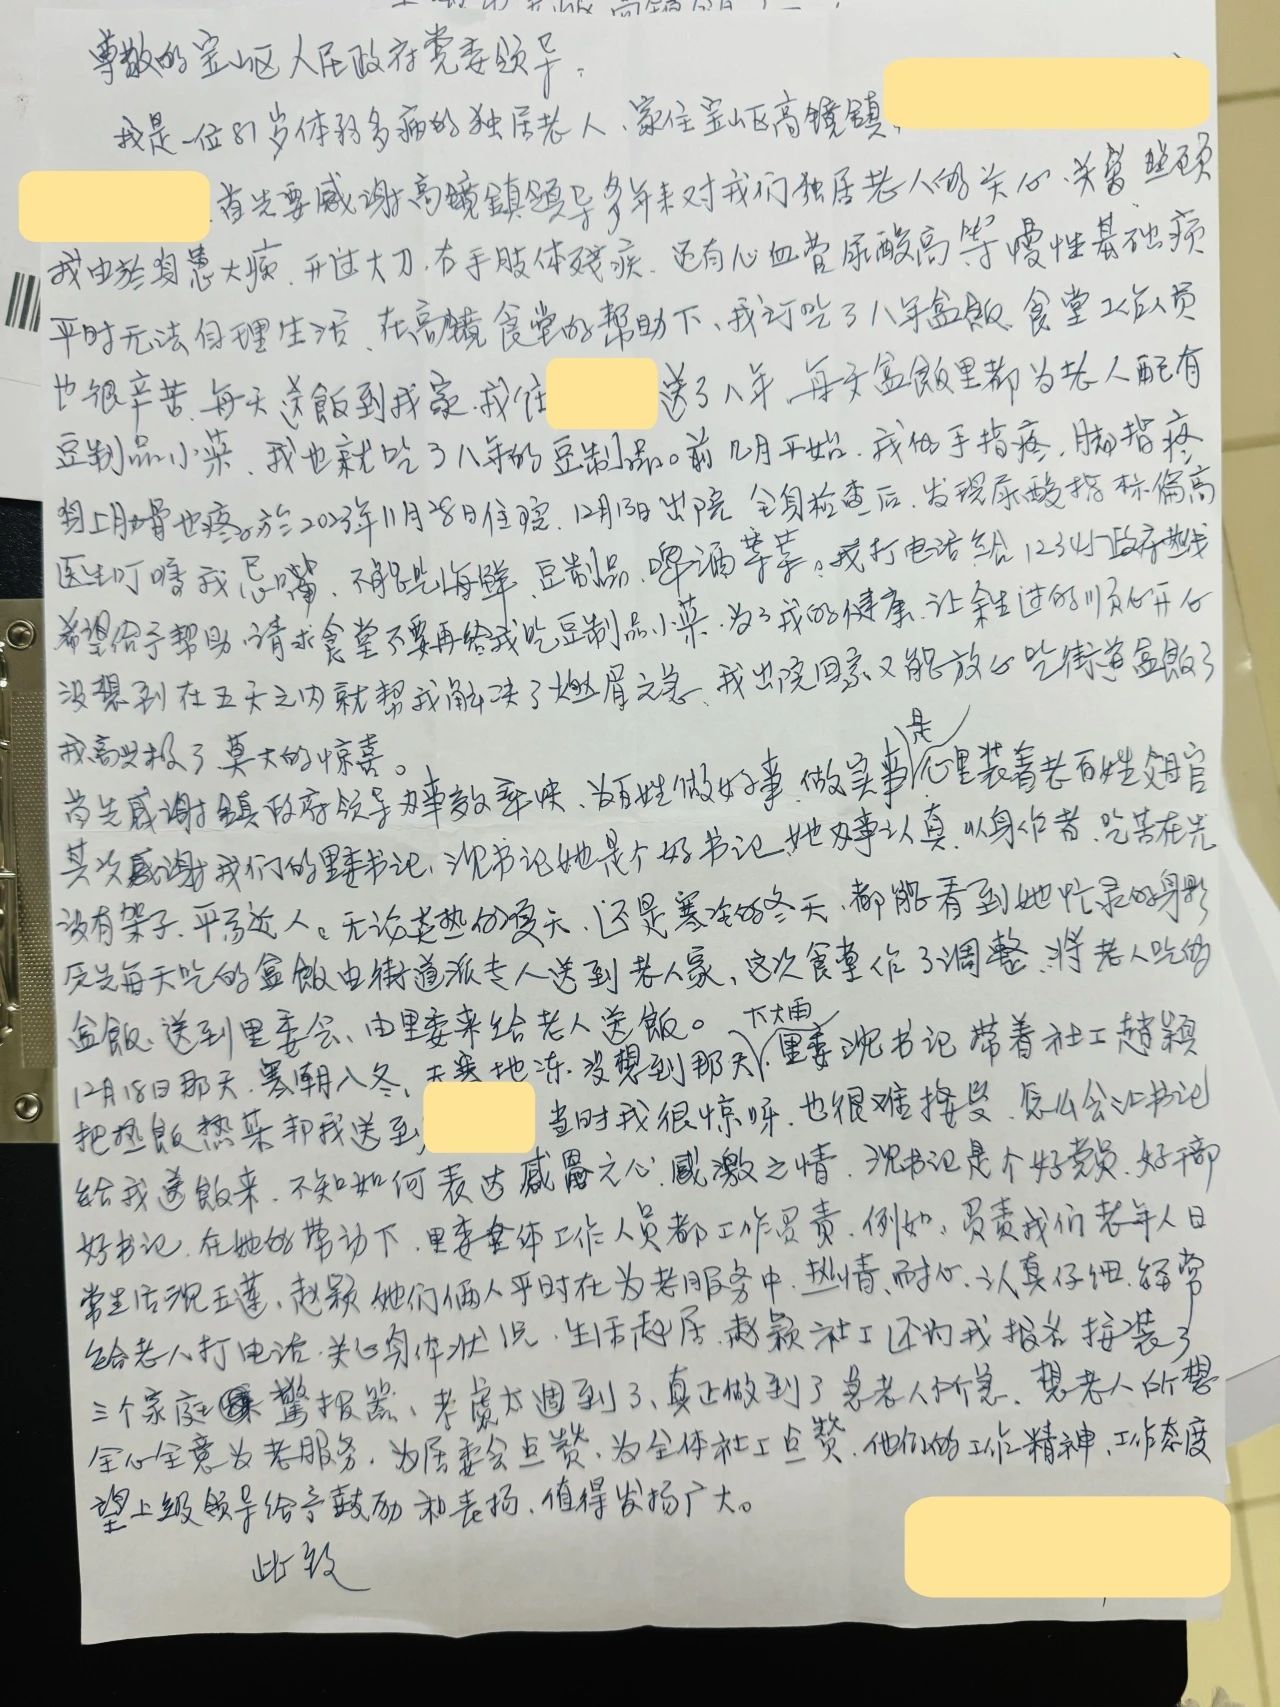 尊敬的宝山区人民政府党委领导:
我是一位87岁体弱多病的独居老人、家住宝山区高镜镇
首先要感谢高镜鎮领导多年来对我们独居老人的关心、关爱照顾
我由於身患大病、开过大刀、右手肢体残疾、还有心血管尿酸高等慢性基础病
平时无法自理生活、在高镜食堂的帮助下、我订吃了八年盒飯、食堂工作人员
也很辛苦、每天送飯到我家、我住 送了八年、每天盒飯里都为老人配有
豆制品小菜、我也就吃了八年的豆制品。前几月开始、我的手指疼、脚指疼
身上肋骨也疼。於2023年11月28日住院、12月13日出院 全身检查后、发现尿酸指标偏高
医生叮嘱我忌嘴、不能吃海鲜、豆制品、啤酒等等。我打电话给12345政府热线
希望给予帮助、请求食堂不要再给我吃豆制品小菜、为了我的健康、让余生过的顺心开心
没想到在五天之内就帮我解决了燃眉之急、我出院回家又能放心吃街道盒飯了
我高兴极了、莫大的惊喜。
首先感谢鎮政府领导办事效率快、为百姓做好事、做实事、是心里装着老百姓父母官
其次感谢我们的里委书记、沈书记她是个好书记、她办事认真、以身作者、吃苦在先
没有架子、平易近人。无论炎热的夏天、还是寒冷的冬天、都能看到她忙录的身影
原先每天吃的盒飯由街道派专人送到老人家、这次食堂作了调整、将老人吃的
盒飯、送到里委会、由里委来给老人送飯。
12月18日那天、寒朝入冬、天寒地冻、没想到那天下大雨、里委沈书记带着社工趙颖
把热飯热菜邦我送到 当时我很惊呀、也很难接受、怎么会让书记
给我送飯来、不知如何表达感恩之心、感激之情、沈书记是个好党员、好干部
好书记、在她的带动下、里委全体工作人员都工作负责、例如、负责我们老年人日
常生活沈玉莲、赵颖她们俩人平时在为老服务中、热情、耐心、认真仔细、经常
给老人打电话、关心身体状况、生活起居、赵颖社工还为我报名接装了
三个家庭警报器、考虑太週到了、真正做到了急老人所急、想老人所想
全心全意为老服务、为居委会点赞、为全体社工点赞、他们的工作精神、工作态度
望上级领导给予鼓励和表扬、值得发扬广大。
此致